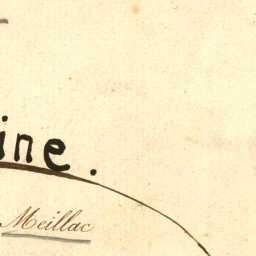 ine.
Meillac